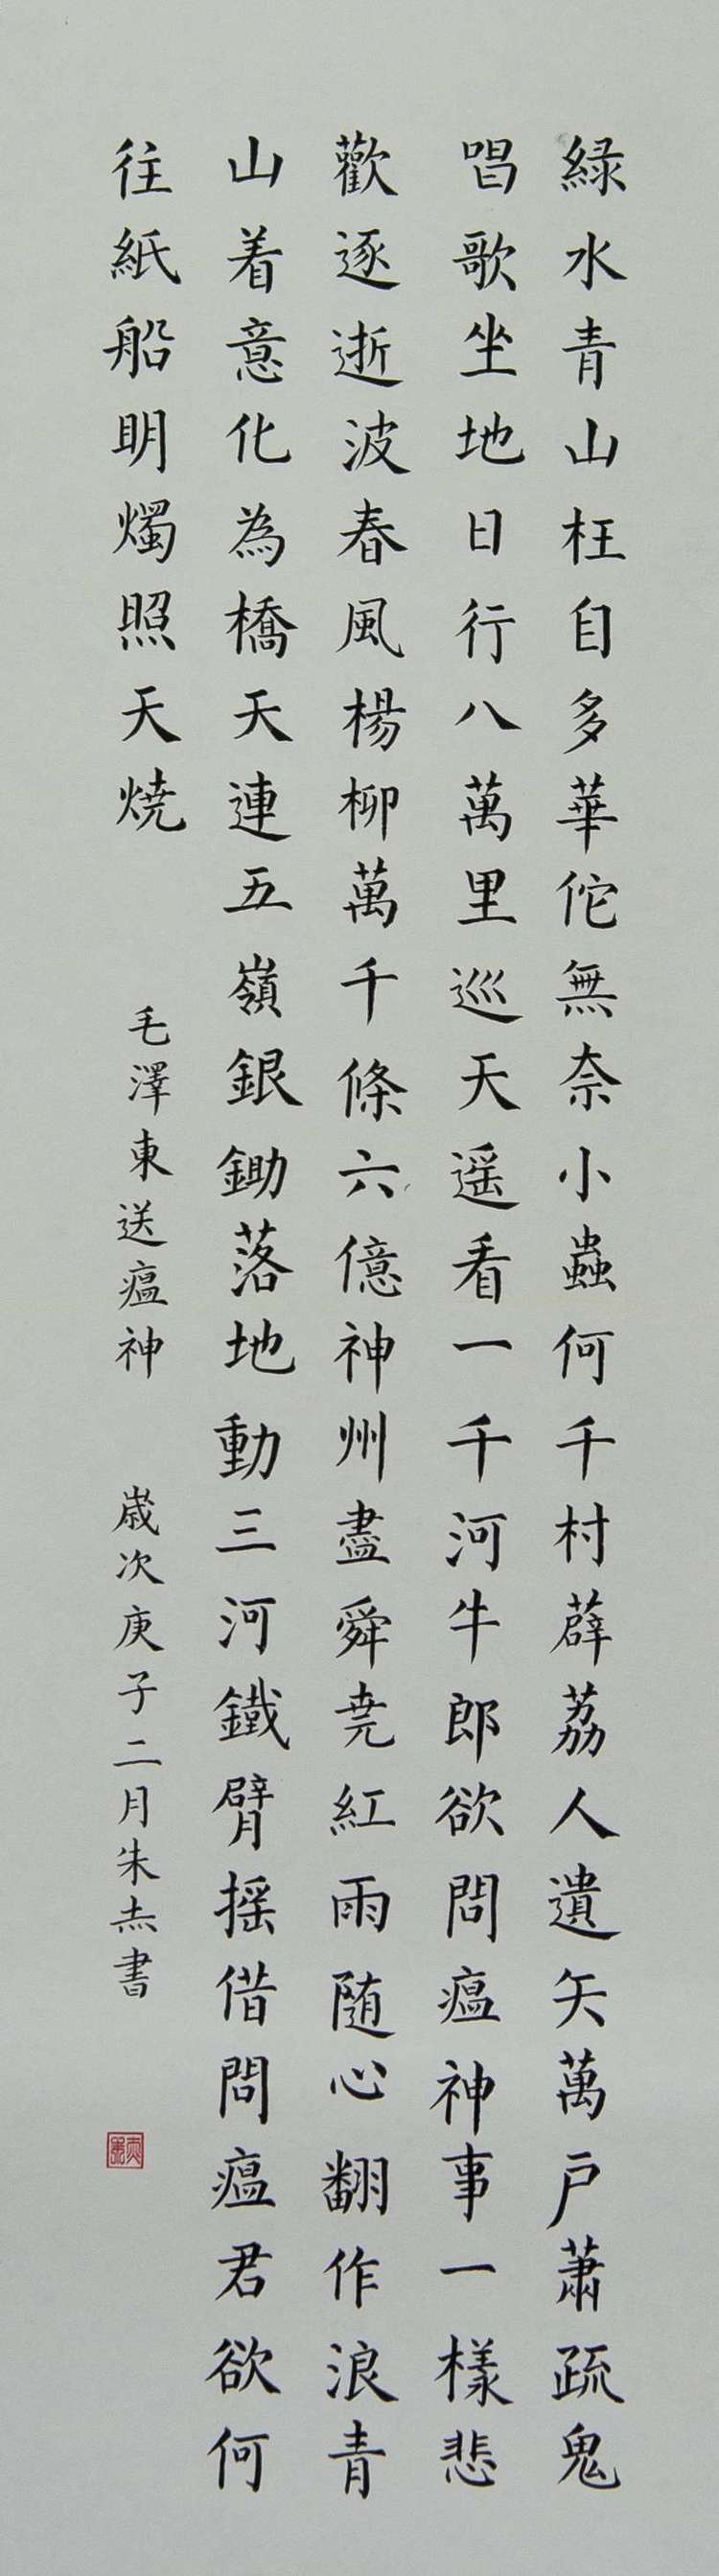 緑水青山枉自多華佗無奈小蟲何千村薜荔人遺矢萬戶蕭疏鬼
唱歌坐地日行八萬里巡天遥看一千河牛郎欲問瘟神事一樣悲
歡逐逝波春風楊柳萬千條六億神州盡舜尭紅雨随心翻作浪青
山着意化為橋天連五嶺銀鋤落地動三河鐵臂摇借問瘟君欲何
往紙船明燭照天焼
毛澤東送瘟神
歲次庚子二月朱㶣書